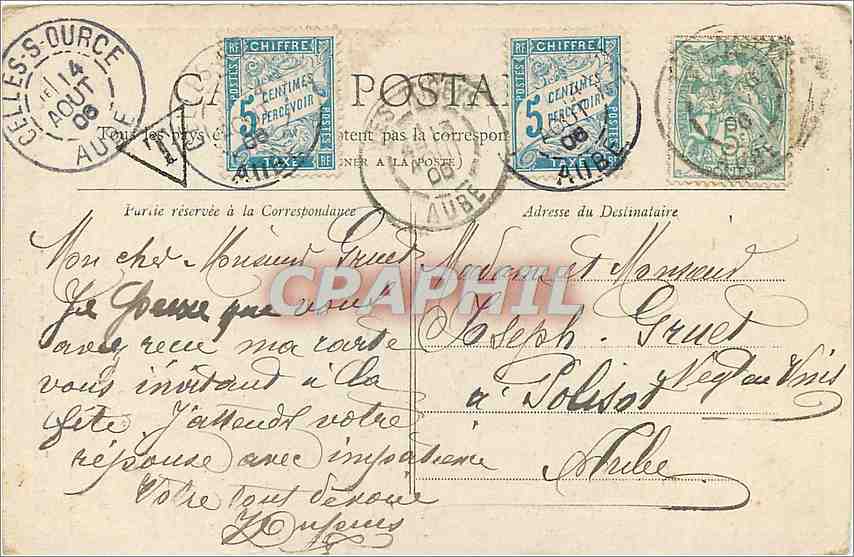 CELLES-S-OURCE
14
AOUT
06
AUBE
T
RF CHIFFRE
POSTES
5 CENTIMES
À PERCEVOIR
TAXE
RF CHIFFRE
POSTES
5 CENTIMES
À PERCEVOIR
TAXE
AUBE
06
AUBE
06
AUBE
CARTE POSTALE
Tous les pays étrangers n'acceptent pas la correspon
(SE RENSEIGNER A LA POSTE)
Partie réservée à la Correspondance
Mon cher Monsieur Gruet
Je pense que vous
avez recu ma carte
vous invitant à la
fête. J'attends votre
réponse avec impatience
Votre tout dévoué
Adresse du Destinataire
Madame et Monsieur
Joseph. Gruet
Négt en Vins
à Polisot
Aube
CPAPHIL